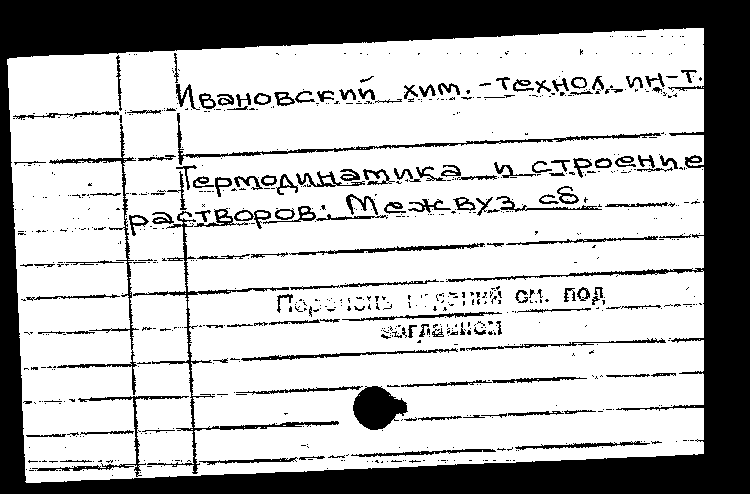 Ивановский хим.-технол. ин-т.
Термодинамика и строение
растворов: Межвуз. сб.
Перечень изданий см. под
заглавием